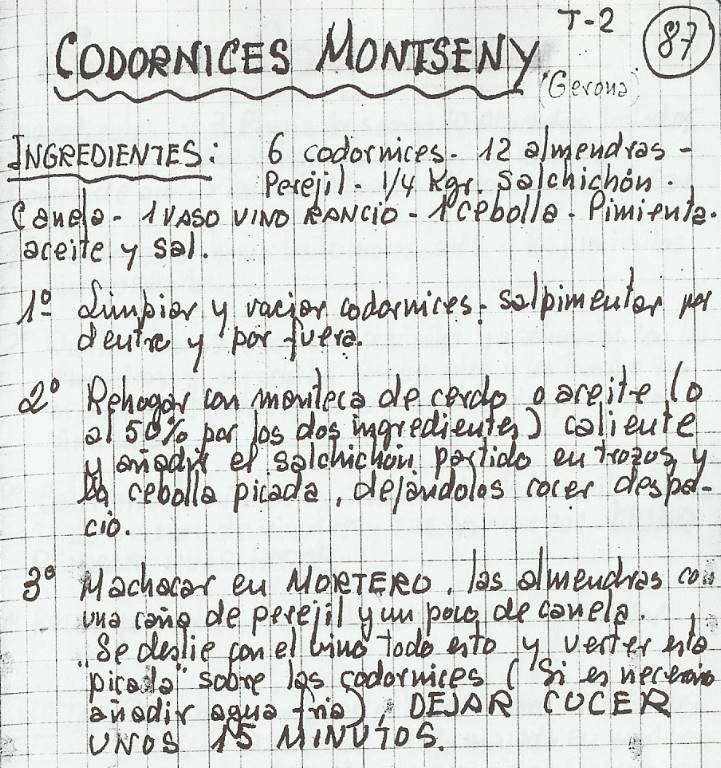 T-2
87
CODORNICES MONTSENY
(Gerona)
INGREDIENTES: 6 codornices - 12 almendras -
Perejil - 1/4 Kgr. Salchichón.
Canela - 1 VASO VINO RANCIO - 1 cebolla - Pimienta.
aceite y sal.
1º Limpiar y vaciar codornices. Salpimentar por
dentro y por fuera.
2º Rehogar con manteca de cerdo o aceite (o
al 50% por los dos ingredientes) caliente
y añadir el salchichón partido en trozos y
la cebolla picada, dejándolos cocer despa-
cio.
3º Machacar en MORTERO, las almendras con
una caña de perejil y un poco de canela.
Se deslie con el vino todo esto y verter esta
"picada" sobre las codornices (Si es necesario
añadir agua fria), DEJAR COCER
UNOS 15 MINUTOS.